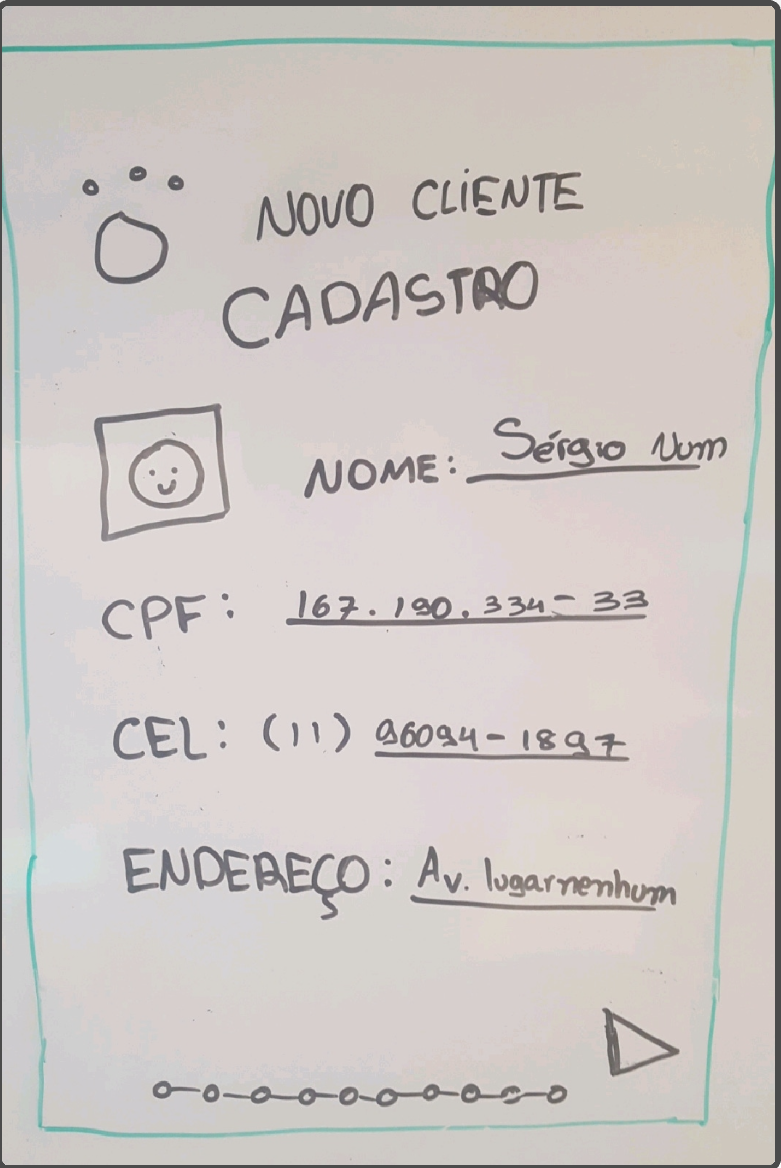 NOVO CLIENTE
CADASTRO
NOME: Sérgio Num
CPF: 167.190.334-33
CEL: (11) 96094-1897
ENDEREÇO: Av. lugarnenhum